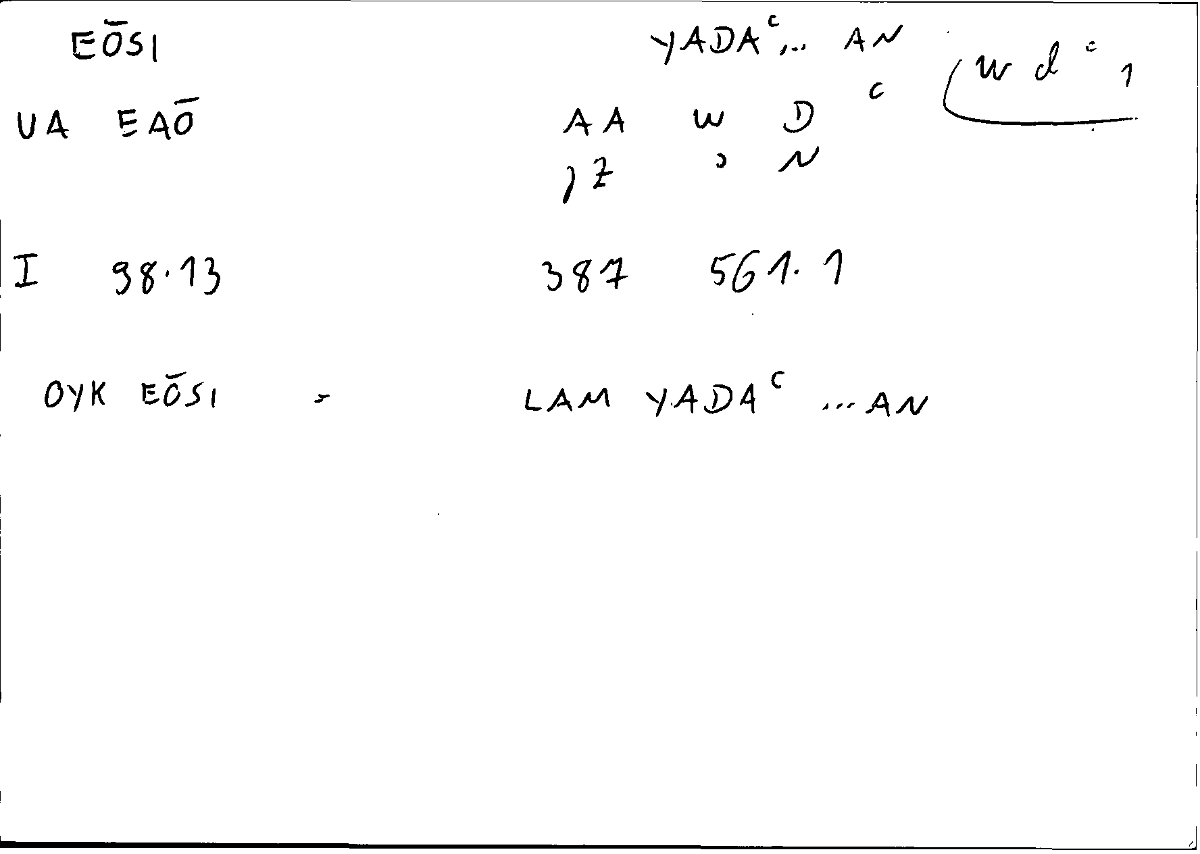 EŌSI YADAᶜ... AN (wdᶜ1
UA EAŌ AA W D ᶜ
ʾZ ʾ N
I 98.13 387 561.1
OYK EŌSI = LAM YADAᶜ ...AN